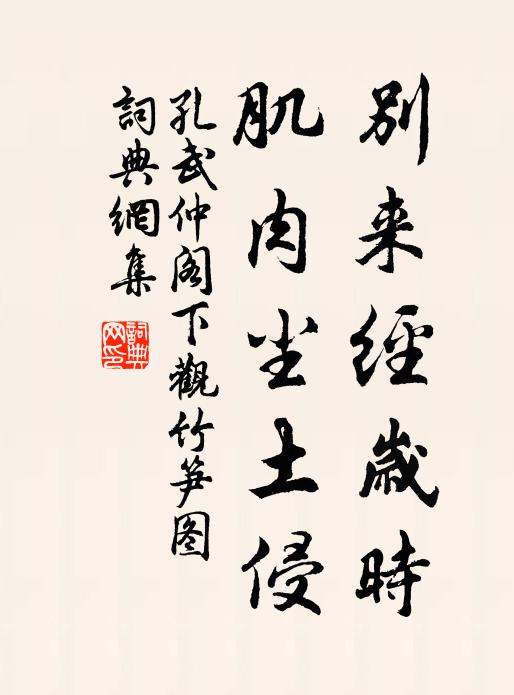 別来經歲時
肌肉尘土侵
孔武仲阁下觀竹笋图
詞典網集
詞典网印